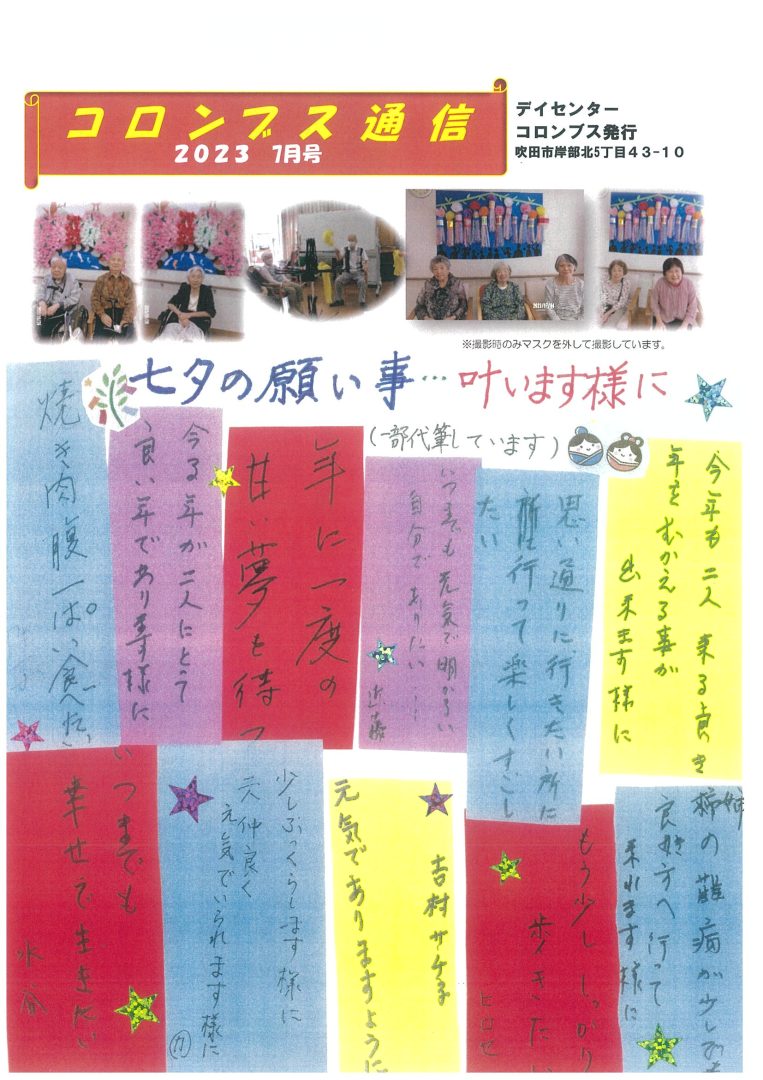 コロンブス通信
2023 7月号
デイセンター
コロンブス発行
吹田市岸部北5丁目43-10
※撮影時のみマスクを外して撮影しています。
七夕の願い事…叶います様に
(一部代筆しています)
今年も二人 来る良き
年をむかえる事が
出来ます様に
思い通りに行きたい所に
行って楽しくすごし
たい
いつまでも元気で明かるい
自分でありたい…
年に一度の
甘い夢を待つ
今る年が二人にとって
良い年であります様に
焼き肉腹一ぱい食べたい
姉の難病が少しでも
良き方へ行って
来れます様に
もう少ししっかり
歩きたい
ヒロセ
吉村サチ子
元気でありますように
少しぷっくらします様に
夫仲良く
元気でいられます様に
いつまでも
幸せで生きたい
水谷